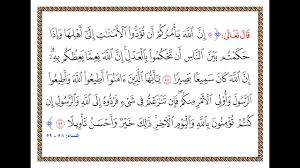 قَالَ تَعَالَىٰ: ﴿ إِنَّ ٱللَّهَ يَأْمُرُكُمْ أَن تُؤَدُّوا۟ ٱلْأَمَـٰنَـٰتِ إِلَىٰٓ أَهْلِهَا وَإِذَا
حَكَمْتُم بَيْنَ ٱلنَّاسِ أَن تَحْكُمُوا۟ بِٱلْعَدْلِ إِنَّ ٱللَّهَ نِعِمَّا يَعِظُكُم بِهِۦٓ
إِنَّ ٱللَّهَ كَانَ سَمِيعًۢا بَصِيرًا ٥٨ يَـٰٓأَيُّهَا ٱلَّذِينَ ءَامَنُوٓا۟ أَطِيعُوا۟ ٱللَّهَ وَأَطِيعُوا۟
ٱلرَّسُولَ وَأُو۟لِى ٱلْأَمْرِ مِنكُمْ فَإِن تَنَـٰزَعْتُمْ فِى شَىْءٍ فَرُدُّوهُ إِلَى ٱللَّهِ وَٱلرَّسُولِ إِن
كُنتُمْ تُؤْمِنُونَ بِٱللَّهِ وَٱلْيَوْمِ ٱلْـَٔاخِرِ ذَٰلِكَ خَيْرٌ وَأَحْسَنُ تَأْوِيلًا ٥٩ ﴾
النساء: ٥٨ - ٥٩